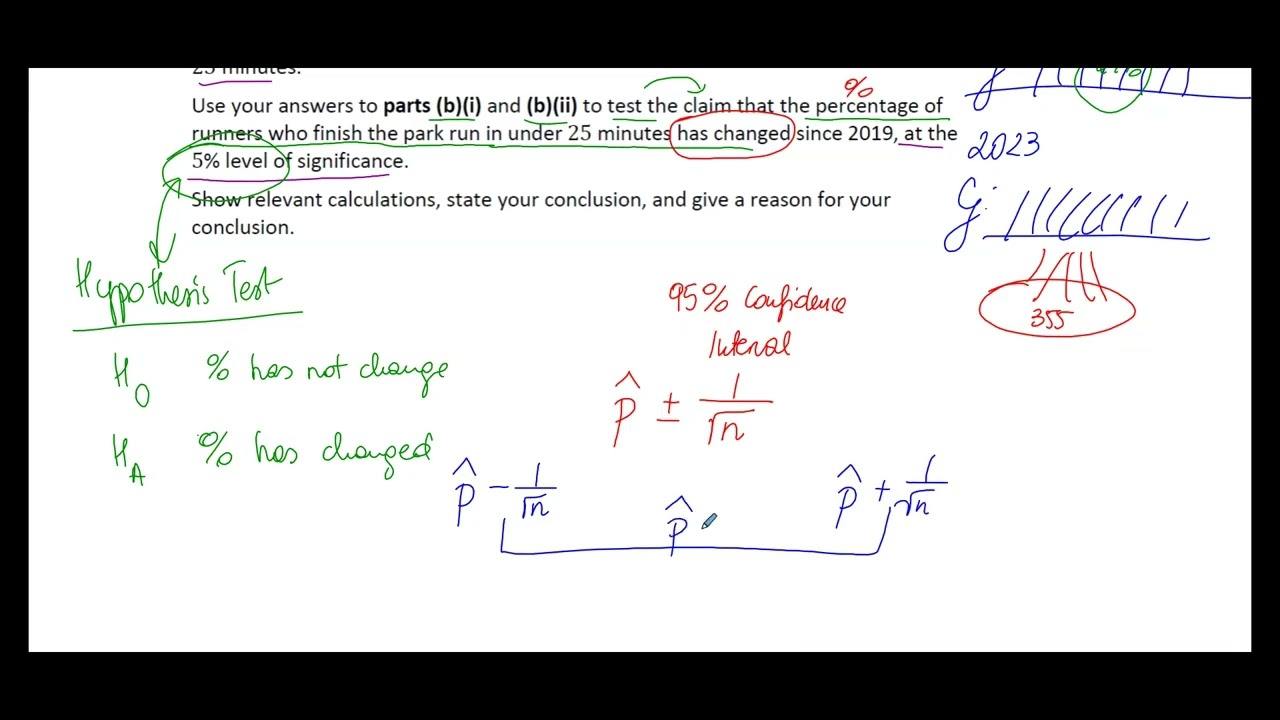 25 minutes.
Use your answers to parts (b)(i) and (b)(ii) to test the claim that the percentage of
runners who finish the park run in under 25 minutes has changed since 2019, at the
5% level of significance.
Show relevant calculations, state your conclusion, and give a reason for your
conclusion.
%
2023
G:
355
Hypothesis Test
H₀ % has not change
H_A % has changed
95% Confidence
Interval
p̂ ± 1/√n
p̂ - 1/√n
p̂
p̂ + 1/√n